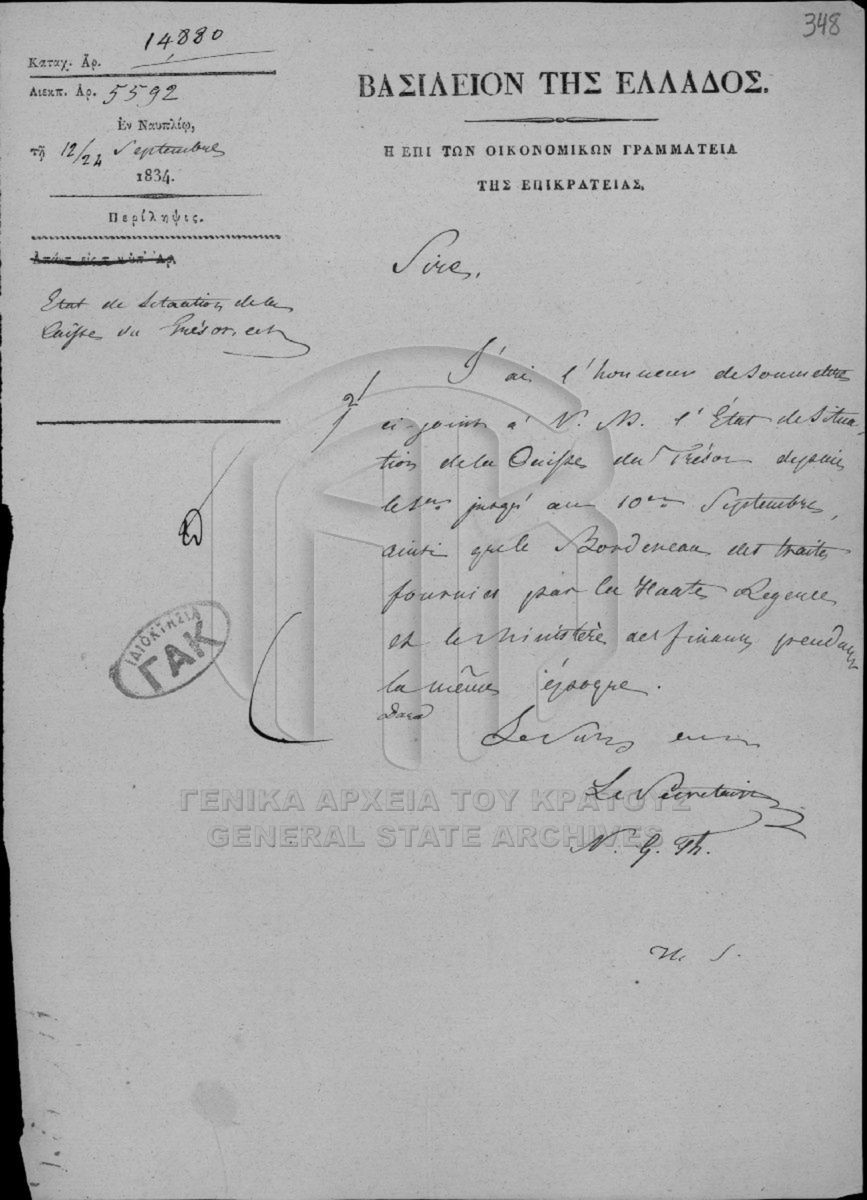 348
14880
Καταχ. Ἀρ.
Διεκπ. Ἀρ. 5592
Ἐν Ναυπλίῳ,
τῇ 12/24 Septembre
1834.
Περίληψις.
Ἀπάντ. εἰς τ. ὑπ' Ἀρ.
Etat de situation de la
Caisse du Trésor, etc
ΒΑΣΙΛΕΙΟΝ ΤΗΣ ΕΛΛΑΔΟΣ.
Η ΕΠΙ ΤΩΝ ΟΙΚΟΝΟΜΙΚΩΝ ΓΡΑΜΜΑΤΕΙΑ
ΤΗΣ ΕΠΙΚΡΑΤΕΙΑΣ.
Sire,
J'ai l'honneur de soumettre
ci-joint à V. M. l'État de situa-
tion de la Caisse du Trésor depuis
le 1er jusqu'au 10er Septembre,
ainsi que le Bordereau des traites
fournies par la Haute Regence
et le Ministère des finances pendant
la même époque.
Le Secretaire
N. G. Th.
ΙΔΙΟΚΤΗΣΙΑ
ΓΑΚ
ΓΕΝΙΚΑ ΑΡΧΕΙΑ ΤΟΥ ΚΡΑΤΟΥΣ
GENERAL STATE ARCHIVES